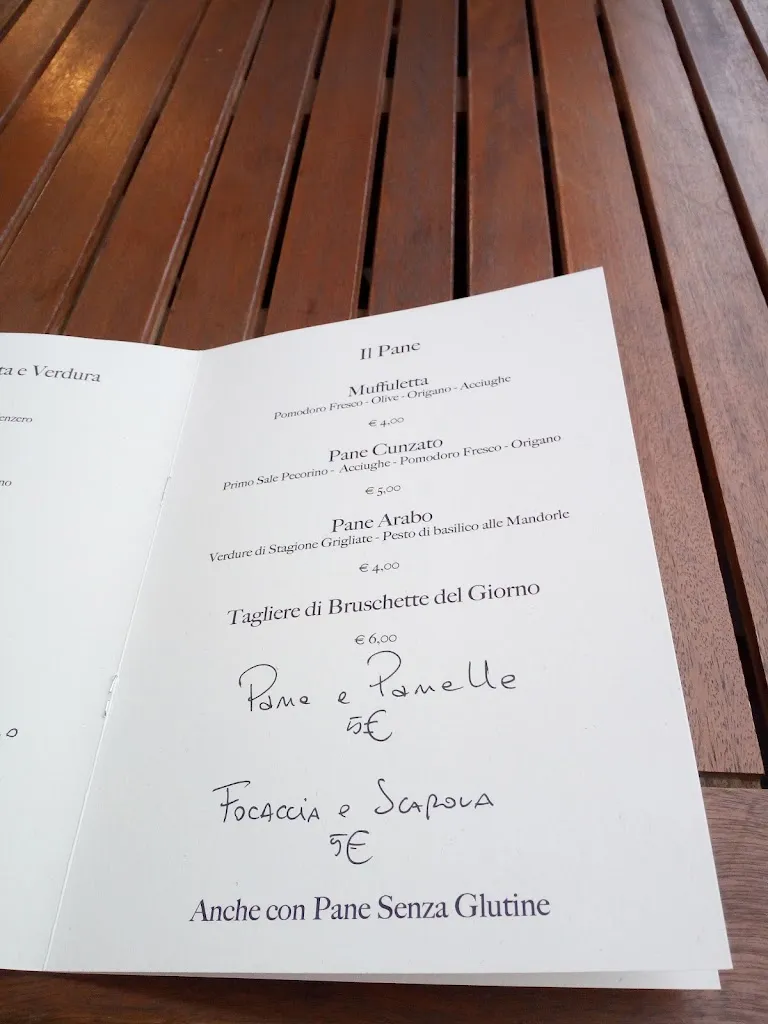 ta e Verdura
enzero
no
o
Il Pane
Muffuletta
Pomodoro Fresco - Olive - Origano - Acciughe
€ 4,00
Pane Cunzato
Primo Sale Pecorino - Acciughe - Pomodoro Fresco - Origano
€ 5,00
Pane Arabo
Verdure di Stagione Grigliate - Pesto di basilico alle Mandorle
€ 4,00
Tagliere di Bruschette del Giorno
€ 6,00
Pane e Panelle
5€
Focaccia e Scarola
5€
Anche con Pane Senza Glutine